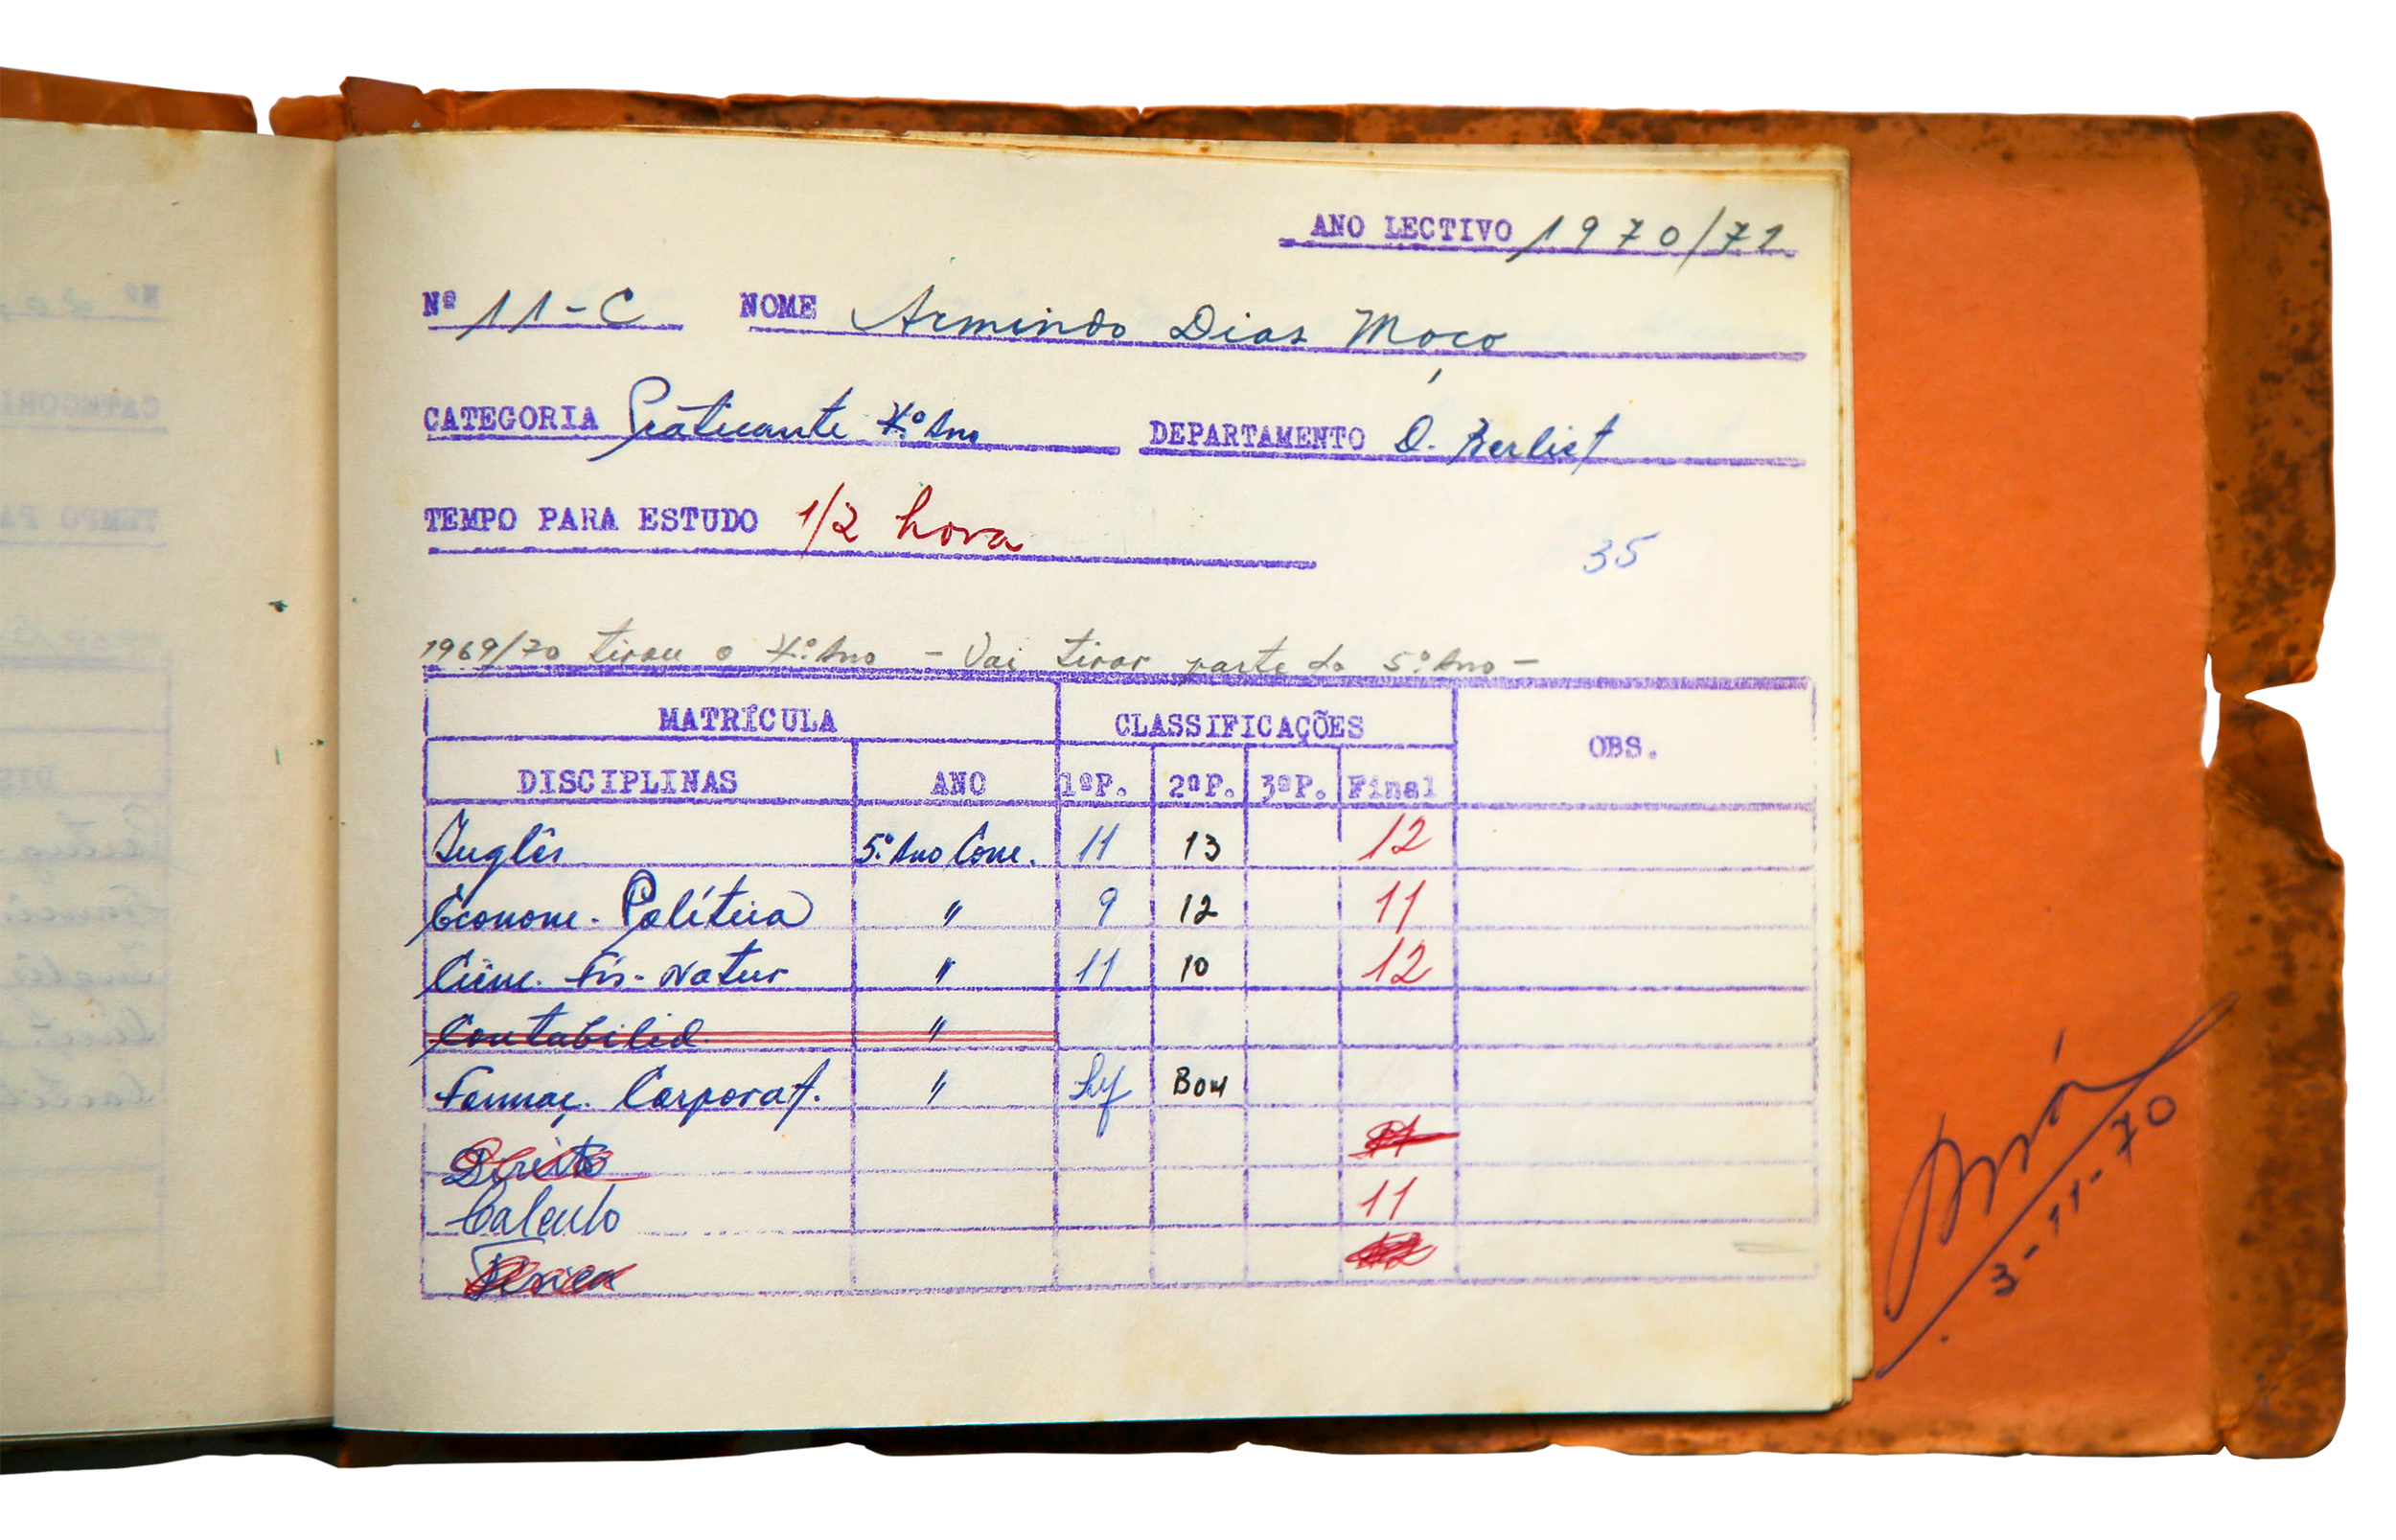 ANO LECTIVO 1970/71
Nº 11-C NOME Armindo Dias Moço
CATEGORIA Praticante 4.º Ano DEPARTAMENTO D. Berliet
TEMPO PARA ESTUDO 1/2 hora
35
1969/70 tirou o 4.º Ano - Vai tirar parte do 5.º Ano -
MATRÍCULA CLASSIFICAÇÕES OBS.
DISCIPLINAS ANO 1ºP. 2ºP. 3ºP. Final
Inglês 5.º Ano Com. 11 13 12
Econom. Política " 9 12 11
Ciênc. Fís-Natur " 11 10 12
Contabilid. "
Formaç. Corporat. " Suf Bom
Direito
Calculo 11
3-11-70